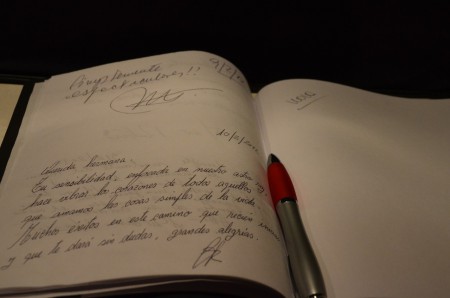 9/2/
Simplemente
espectacular!!
10/2/
Querida hermana
Tu sensibilidad, reflejada en nuestra
hace vibrar los corazones de todos aquellos
que amamos las cosas simples de la vida.
Muchos éxitos en este camino que recién
y que te dará sin dudas, grandes alegrías.